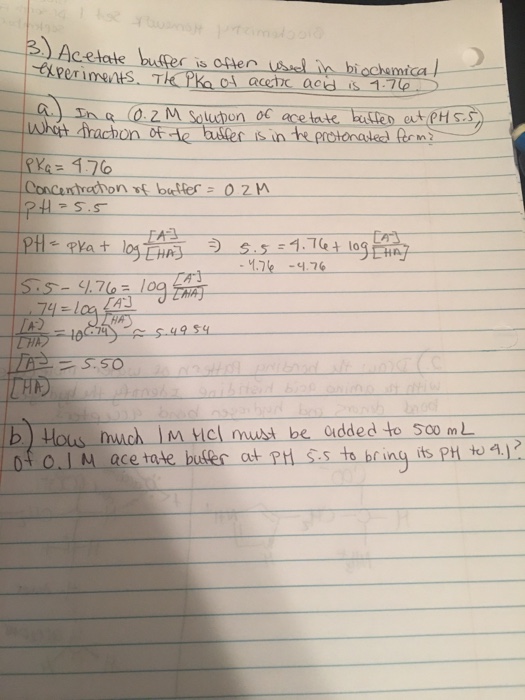 3.) Acetate buffer is often used in biochemical
experiments. The PKa of acetic acid is 4.76.
a.) In a 0.2 M solution of acetate buffer at PH 5.5,
what fraction of the buffer is in the protonated form?
PKa = 4.76
Concentration of buffer = 0.2M
PH = 5.5
PH = PKa + log [A-]/[HA] ⇒ 5.5 = 4.76 + log [A-]/[HA]
-4.76 -4.76
5.5 - 4.76 = log [A-]/[HA]
.74 = log [A-]/[HA]
[A-]/[HA] = 10^(.74) ≈ 5.4954
[A-]/[HA] = 5.50
b.) How much 1M HCl must be added to 500 mL
of 0.1 M acetate buffer at PH 5.5 to bring its PH to 4.1?